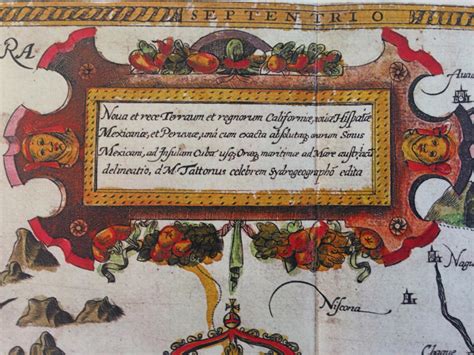 SEPTENTRIO
RA
Nova et rece Terraum et regnorum Californiæ, novæ Hispaniæ
Mexicanæ, et Peruviæ, unà cum exacta absoluta orarum Sinus
Mexicani, ad Insulam Cuba usq₃ Oræq₃ maritimæ ad Mare austriacū
delineatio, à M. Tattonus celebrem Sydrogeographo edita
Niſcona
Chaque